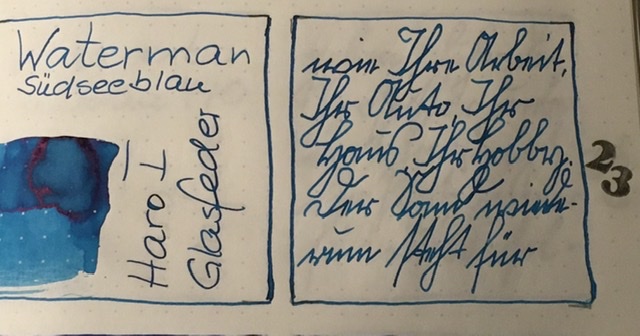 Waterman
Südseeblau
Haro
Glasfeder
wie Ihre Arbeit,
Ihr Auto, Ihr
Haus, Ihr Hobby.
Der Sand wiede-
rum steht für
23